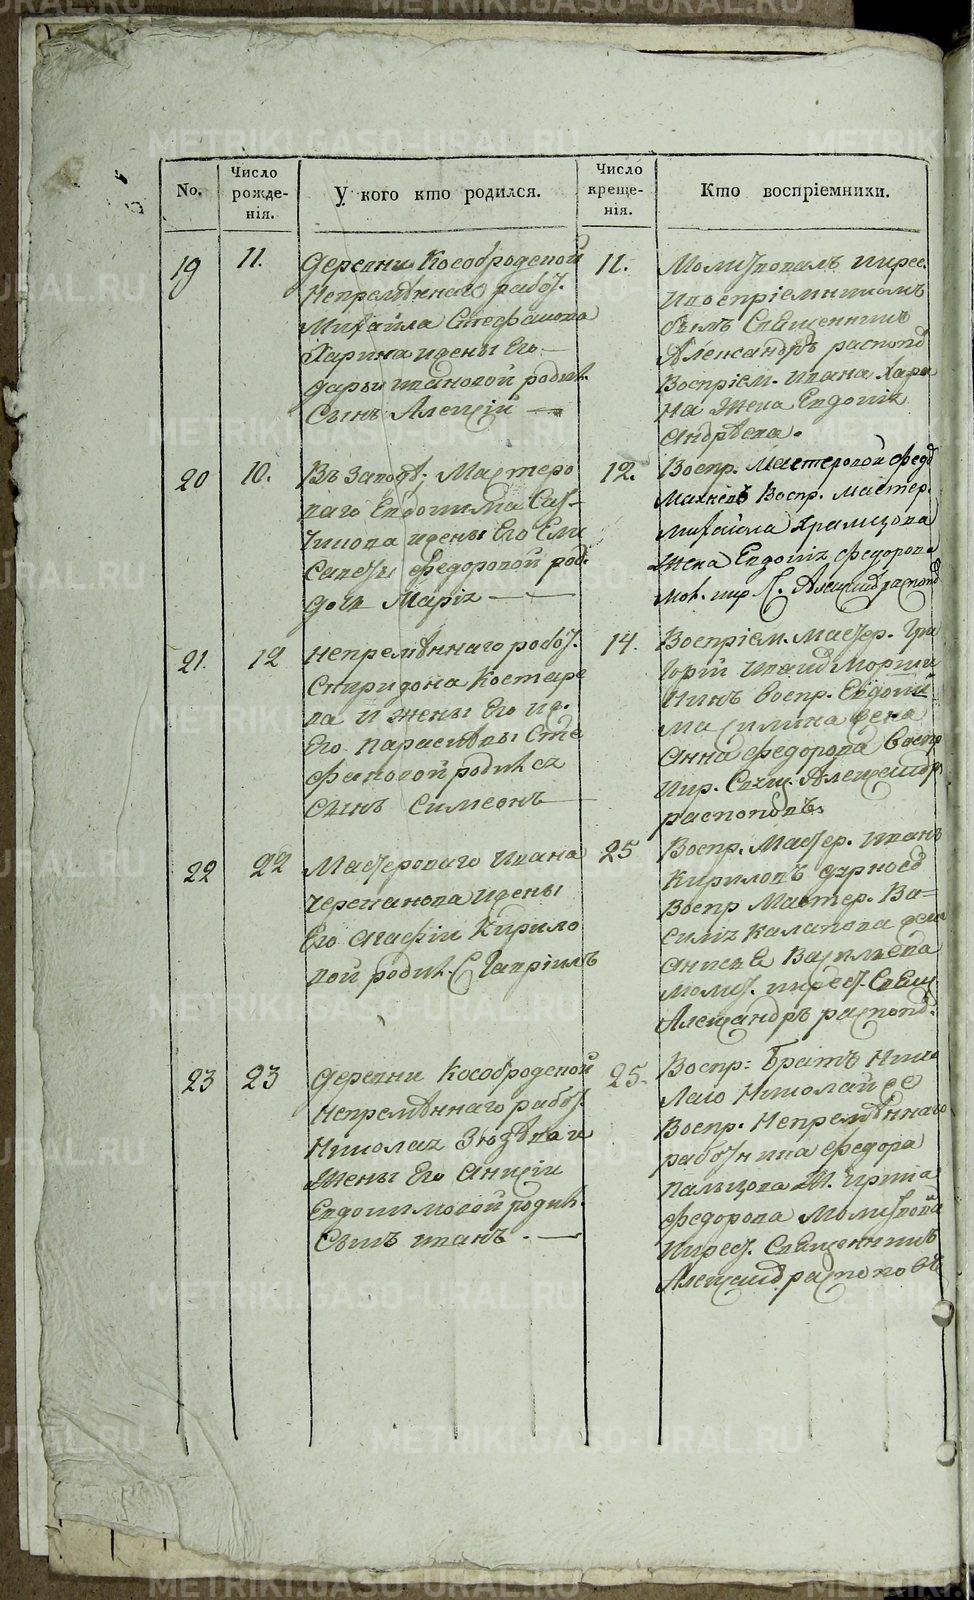 No.
Число рожде-нія.
У кого кто родился.
Число креще-нія.
Кто воспріемники.
19
11.
Деревни Кособродской
Непремѣннаго работ.
Михайла Стефанова
Харина и жены Его
Дарьи Ивановой родил.
Сынъ Алексій —
11.
Молитвовалъ и крес.
И воспріемникомъ
былъ Священникъ
Александръ распопо
Воспріем. Ивана Хари
на жена Евдокія
Андрѣева.
20
10.
Въ Заводѣ; Мастеро
ваго Евдокима
и жены Его Ели
саветы Федоровой род.
дочь Марія — —
12.
Воспр. Мастеровой Федо
Воспр. мастер.
Михайла Храмцова
жена Евдокія Федорова
Мол. и кр. С. Александ распопо
21.
12
Непремѣннаго работ.
Спиридона Костаре
ва и жены Его ид.
Его Парасковьи Сте
фановой родился
Сынъ Симеонъ —
14.
Воспріем. Мастер. Гри
горій
воспр. Евдоки
ма жена
Анна Федорова воспр
и кр. Свящ. Александр
распоповъ.
22
22
Мастероваго Ивана
Черепанова и жены
Его Агафіи Кирило
вой родил. С Гавріилъ
25
Воспр. Мастер. Иванъ
Кириловъ
Воспр Мастер. Ва=
силія жен
Васильева
молит. и крест. Свящ
Александръ распопо.
23
23
Деревни Кособродской
Непремѣннаго работ.
Николая Зюзѣва и
жены Его
Евдокимовой родил.
Сынъ Иванъ. —
25.
Воспр: Братъ Нико
лаю Николай ее
Воспр. Непремѣннаго
работника Федора
Пальцова Ж. Ирина
Федорова Молитвова
и крест. Священникъ
Александ. распоповъ
METRIKI.GASO-URAL.RU